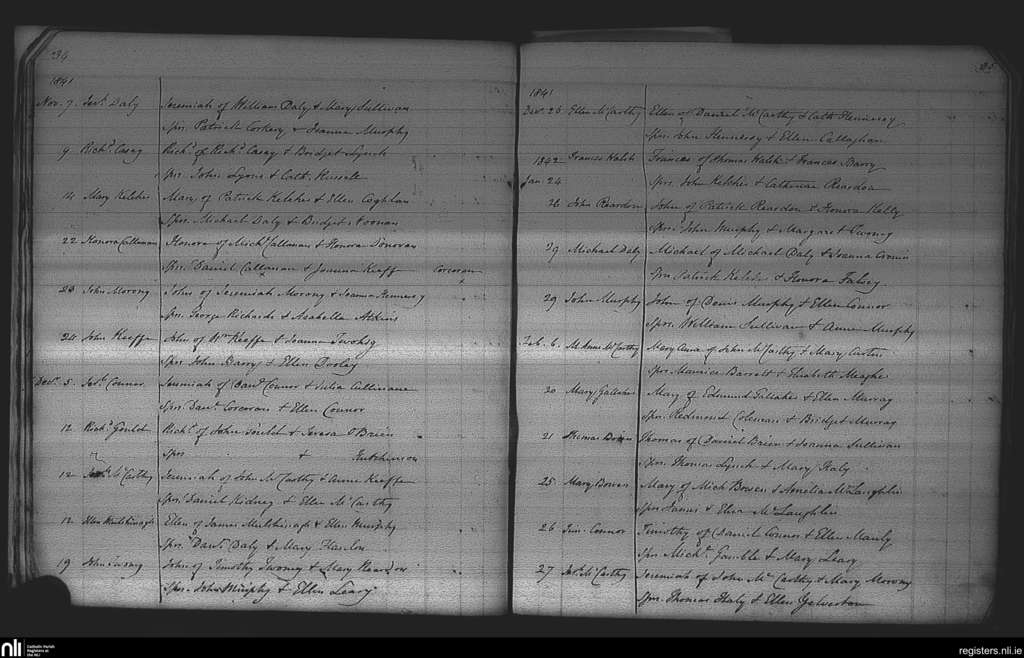 34
1841
Nov. 7 Jerh. Daly Jeremiah of William Daly & Mary Sullivan
Spr. Patrick Corkery & Joanna Murphy
9 Richd. Casey Richd. of Richd. Casey & Bridget Lynch
Spr. John Lyons & Cath. Russell
14 Mary Keleher Mary of Patrick Keleher & Ellen Coghlan
Spr. Michael Daly & Bridget Noonan
22 Honora Callanan Honora of Michl. Callanan & Honora Donovan
Spr. Daniel Callanan & Joanna Keeff Corcoran
23 John Morony John of Jeremiah Morony & Joanna Hennessy
Spr. George Richards & Arabella Atkins
24 John Keeffe John of Wm. Keeffe & Joanna Twohig
Spr. John Barry & Ellen
Decr. 5 Jerh. Connor Jeremiah of Danl. Connor & Julia Cullinane
Spr. Danl. Corcoran & Ellen Connor
12 Richd. Gould Richd. of John Gould & Teresa O'Brien
Spr. & Hutchinson
12 McCarthy Jeremiah of John McCarthy & Anne Keeffe
Spr. Daniel Kidney & Ellen McCarthy
12 Ellen Mulshinagh Ellen of James Mulshinagh & Ellen Murphy
Spr. Danl. Daly & Mary Hanlon
19 John Twomy John of Timothy Twomy & Mary Reardon
Spr. John Murphy & Ellen Leary
35
1841
Decr. 26 Ellen McCarthy Ellen of Daniel McCarthy & Cath Hennessy
Spr. John Hennessy & Ellen Callaghan
1842 Francis Walsh Frances of Thomas Walsh & Frances Barry
Jan. 24 Spr. John Keleher & Catherine Reardon
26 John Reardon John of Patrick Reardon & Honora Kelly
Spr. John Murphy & Margaret Twomy
29 Michael Daly Michael of Michael Daly & Joanna Cronin
Spr. Patrick Keleher & Honora Falvey
29 John Murphy John of Denis Murphy & Ellen Connor
Spr. William Sullivan & Anne Murphy
Feb. 6. M Anne McCarthy Mary Anne of John McCarthy & Mary Curtin
Spr. Maurice Barrett & Elizabeth Meaghe
20 Mary Gallaher Mary of Edmund Gallaher & Ellen Murray
Spr. Redmond Coleman & Bridget Murray
21 Thomas Brien Thomas of Daniel Brien & Joanna Sullivan
Spr. Thomas Lynch & Mary Healy
25 Mary Bowen Mary of Mich Bowen & Amelia McLaughlin
Spr. James & Eliza McLaughlin
26 Tim. Connor Timothy of Daniel Connor & Ellen Manly
Spr. Michl. Gamble & Mary Leary
27 Jerh. McCarthy Jeremiah of John McCarthy & Mary Morony
Spr. Thomas Healy & Ellen Yelverton
nli Catholic Parish
Registers at
the NLI
registers.nli.ie